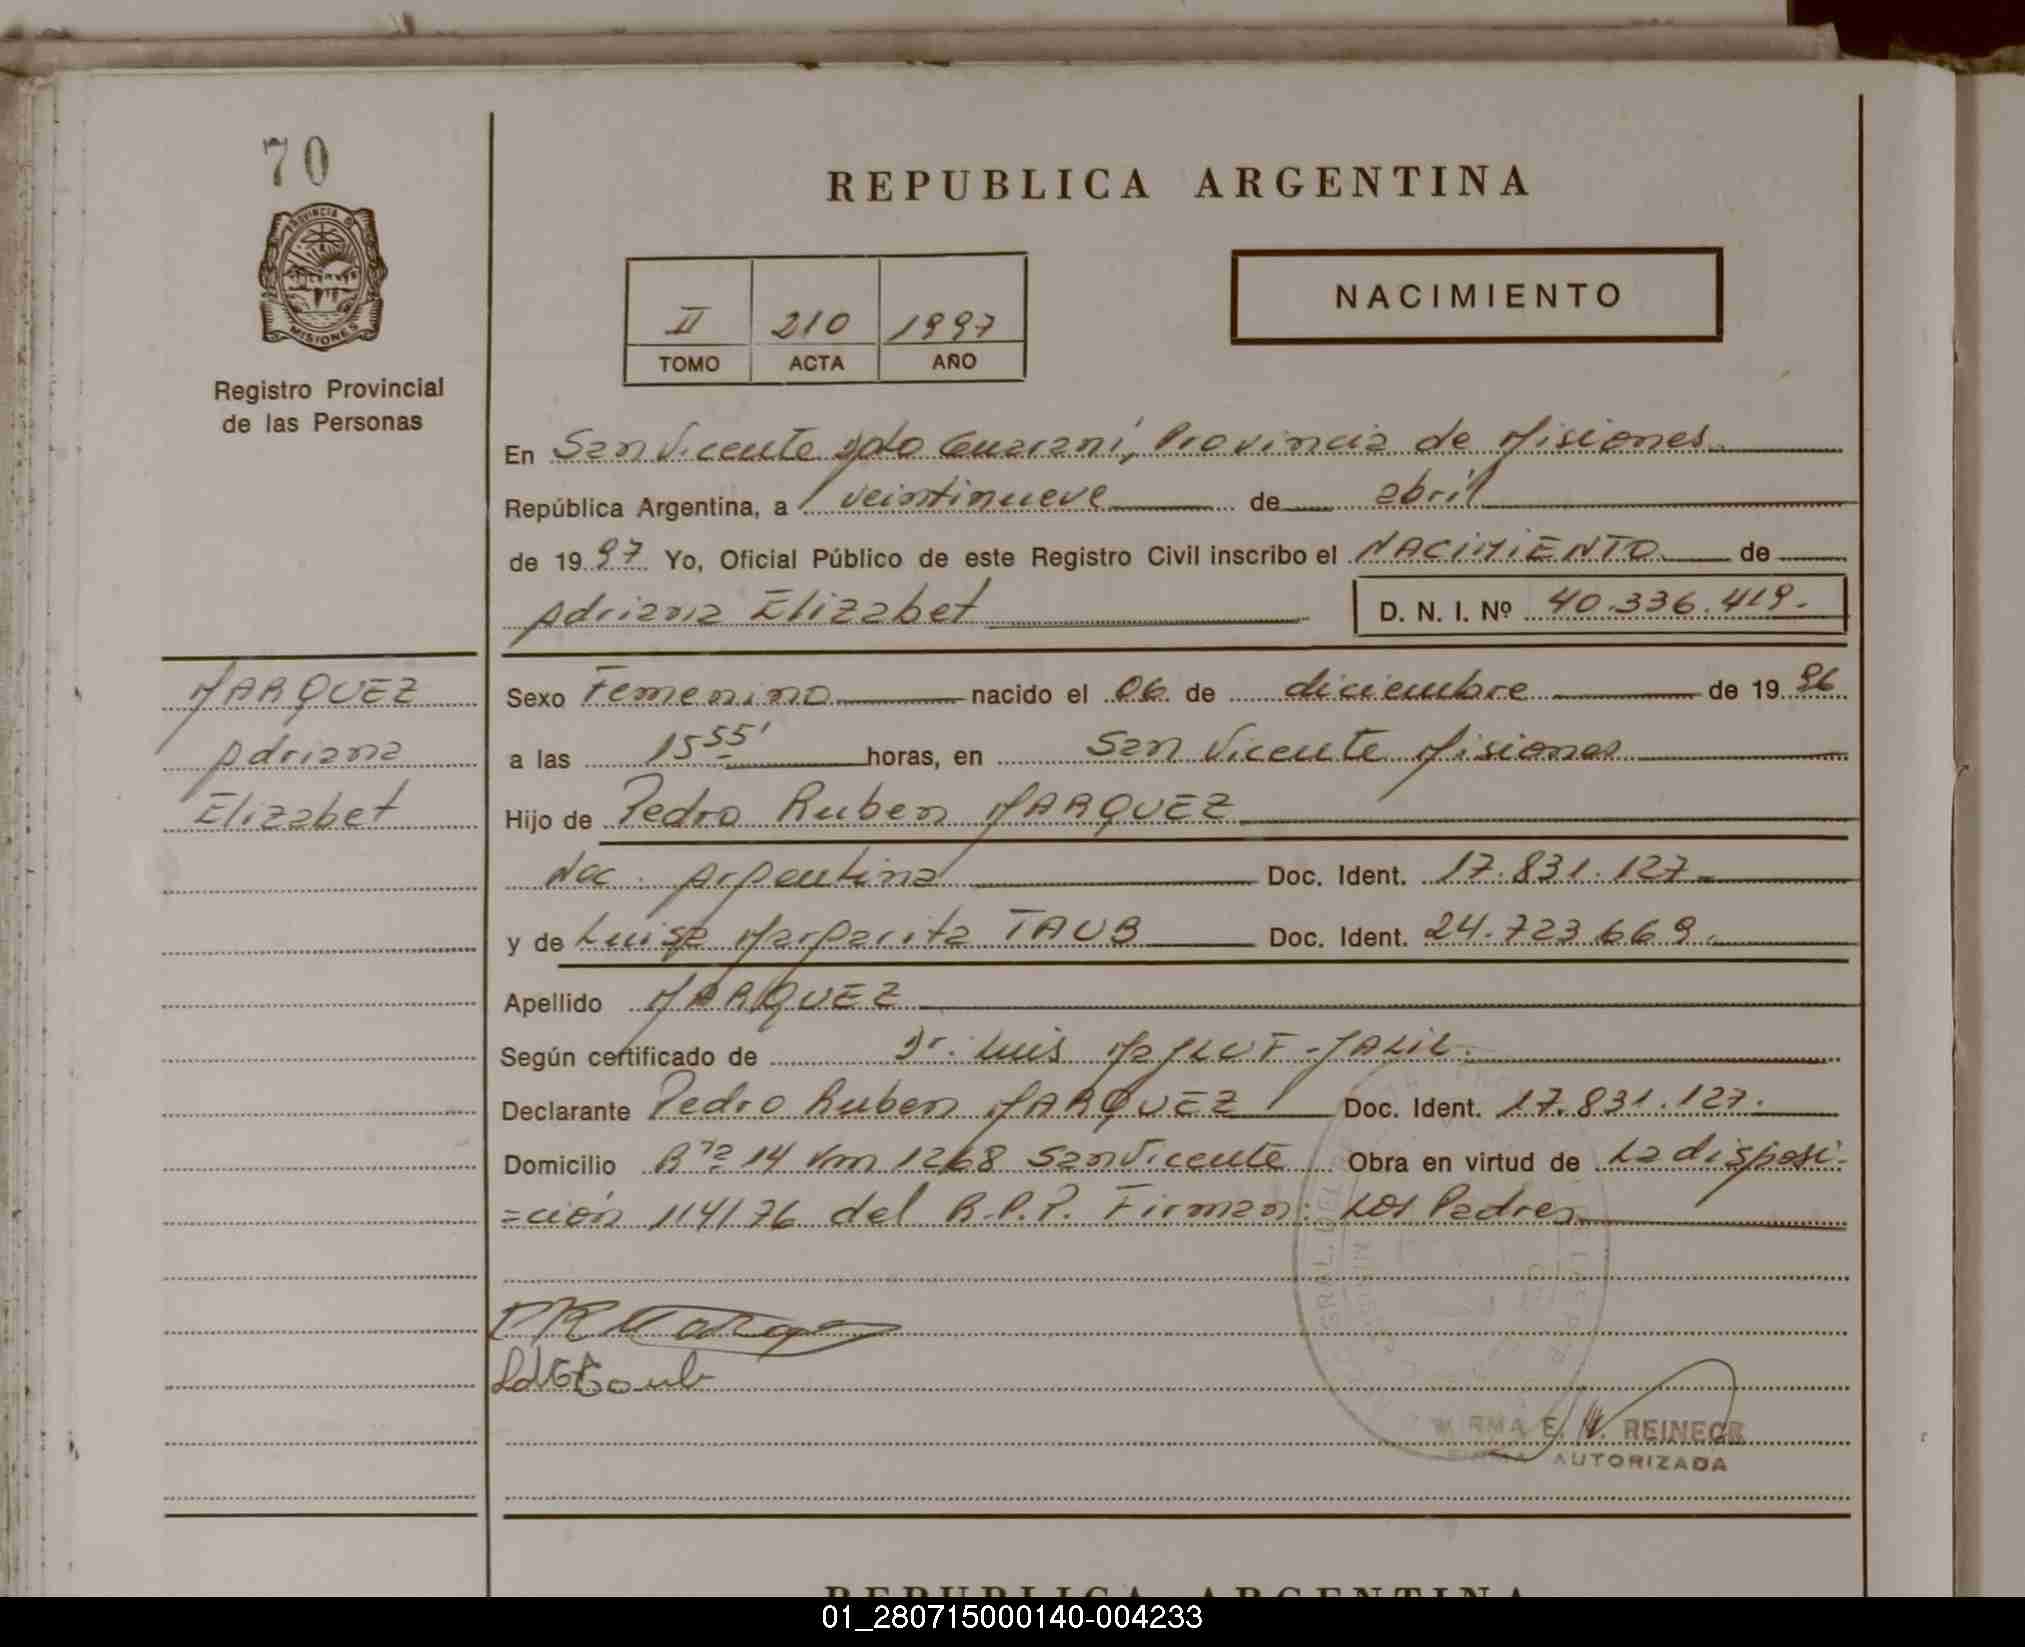 70
PROVINCIA DE
MISIONES
Registro Provincial
de las Personas
REPUBLICA ARGENTINA
II 210 1997
TOMO ACTA AÑO
NACIMIENTO
En San Vicente Dpto Guaraní, Provincia de Misiones
República Argentina, a veintinueve de abril
de 1997 Yo, Oficial Público de este Registro Civil inscribo el NACIMIENTO de
Adriana Elizabet D. N. I. Nº 40.336.419.
MARQUEZ
Adriana
Elizabet
Sexo Femenino nacido el 06 de diciembre de 1996
a las 15 55' horas, en San Vicente Misiones
Hijo de Pedro Ruben MARQUEZ
Nac. Argentina Doc. Ident. 17.831.127
y de Luisa Margarita TAUB Doc. Ident. 24.723.669.
Apellido MARQUEZ
Según certificado de Dr. Luis JALIL.
Declarante Pedro Ruben MARQUEZ Doc. Ident. 17.831.127.
Domicilio Rta 14 Km 1268 San Vicente Obra en virtud de la disposi-
=ción 114/76 del R.P.P. Firman: Los Padres
MIRMA E. W. REINECK
FIRMA AUTORIZADA
REPUBLICA ARGENTINA
01_280715000140-004233